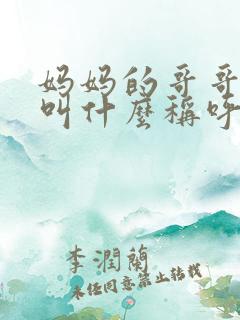 妈妈的哥哥
叫什麼稱呼
李潤蘭
未经同意禁止转载